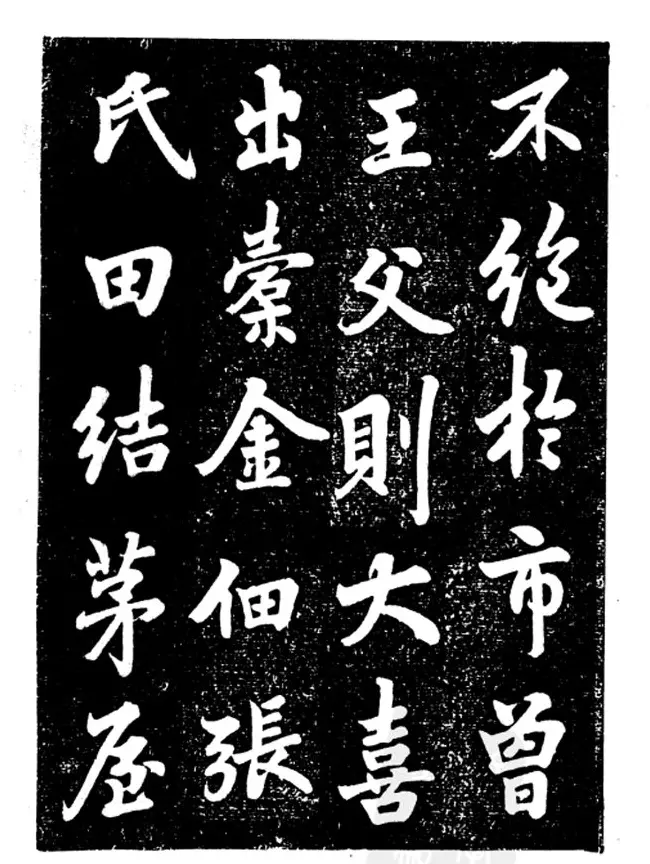 不絶於市曾
王父則大喜
出橐金佃張
氏田結茅屋